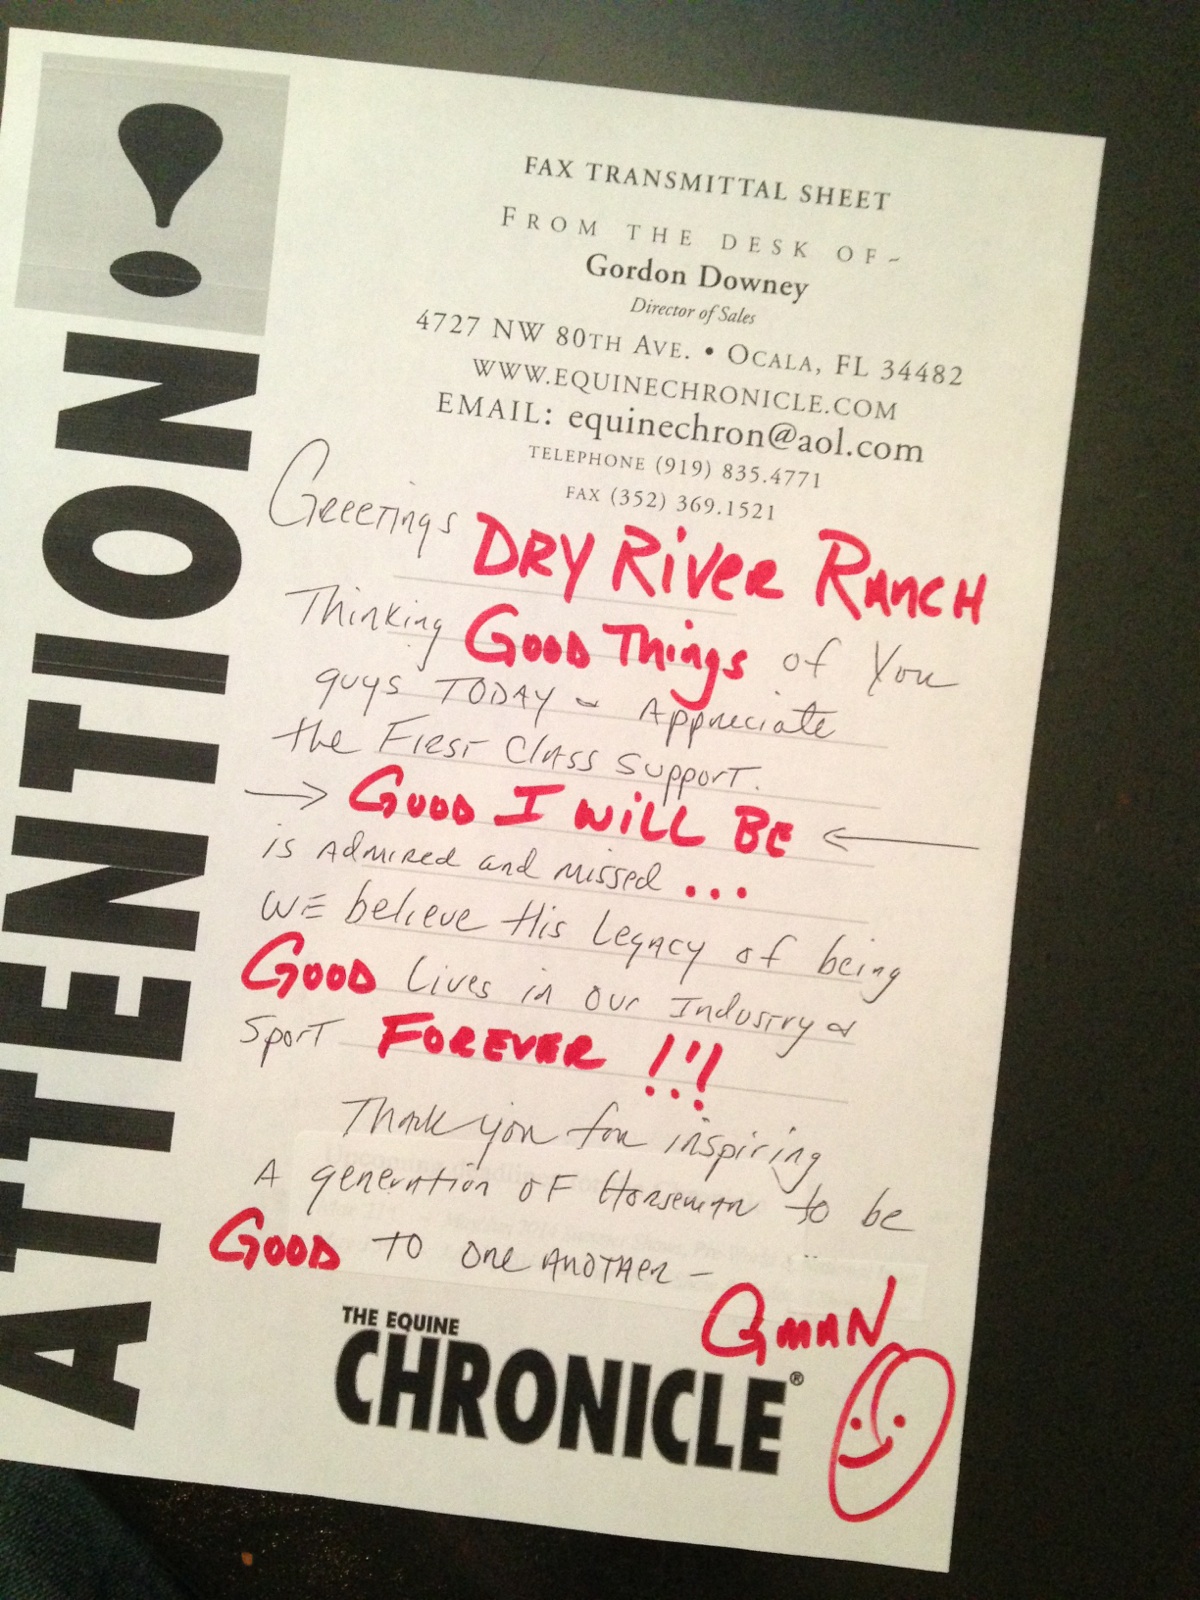 ATTENTION!
FAX TRANSMITTAL SHEET
FROM THE DESK OF~
Gordon Downey
Director of Sales
4727 NW 80TH AVE. • OCALA, FL 34482
WWW.EQUINECHRONICLE.COM
EMAIL: equinechron@aol.com
TELEPHONE (919) 835.4771
FAX (352) 369.1521
Greetings DRY RIVER RANCH
Thinking GOOD Things of You
guys TODAY - Appreciate
the First Class Support.
→ GOOD I WILL BE ←
is Admired and missed ...
WE believe His Legacy of being
GOOD Lives in our Industry &
Sport FOREVER !!!
Thank you for inspiring
A generation of Horseman to be
GOOD TO one ANOTHER -
GMAN
THE EQUINE
CHRONICLE®